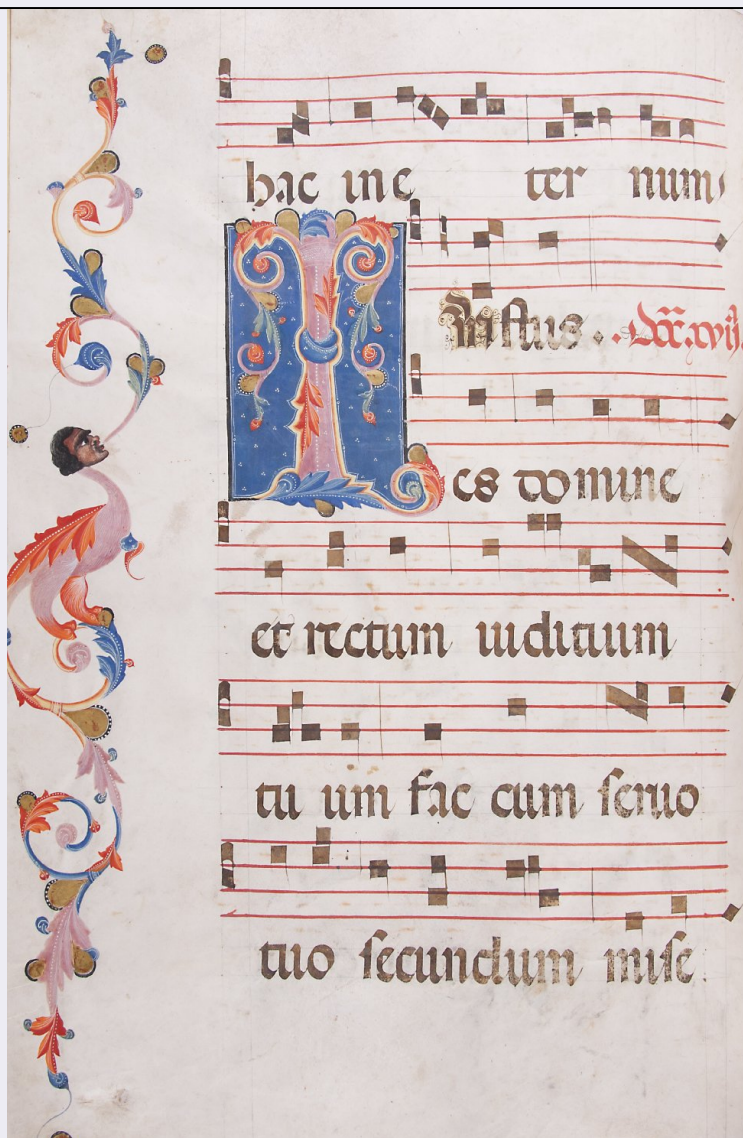 hac in e ter num
IVſtus . . xvij
es domine
et rectum iudicium
tu um fac cum ſeruo
tuo ſecundum miſe